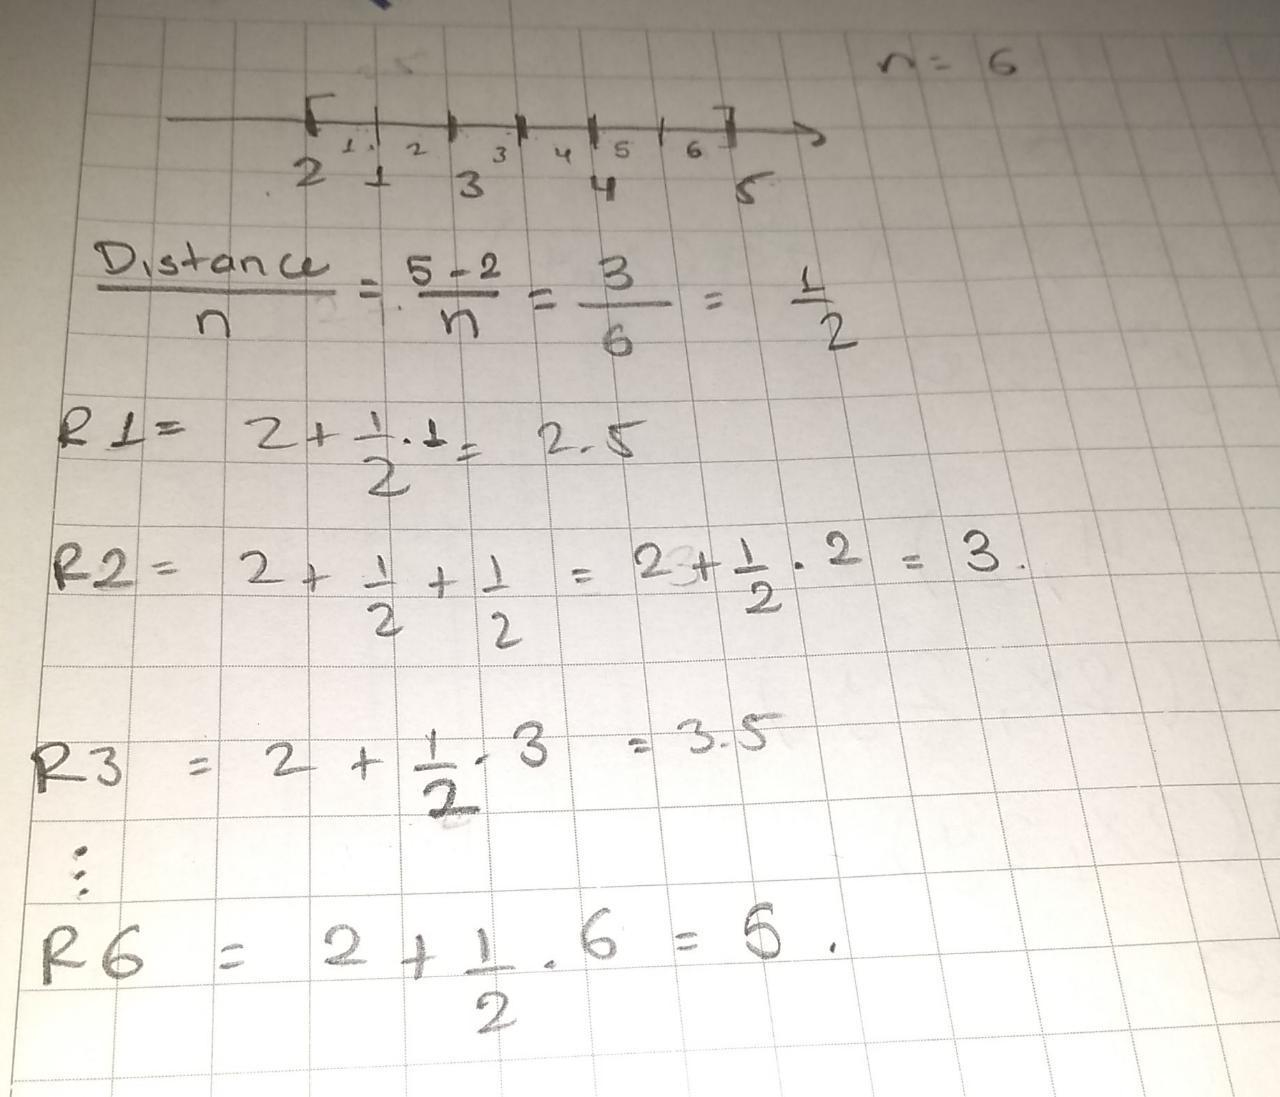 n = 6
1 2 3 4 5 6
2 1 3 4 5
Distance/n = 5-2/n = 3/6 = 1/2
R1 = 2 + 1/2 · 1 = 2.5
R2 = 2 + 1/2 + 1/2 = 2 + 1/2 · 2 = 3.
R3 = 2 + 1/2 · 3 = 3.5
⋮
R6 = 2 + 1/2 · 6 = 5.